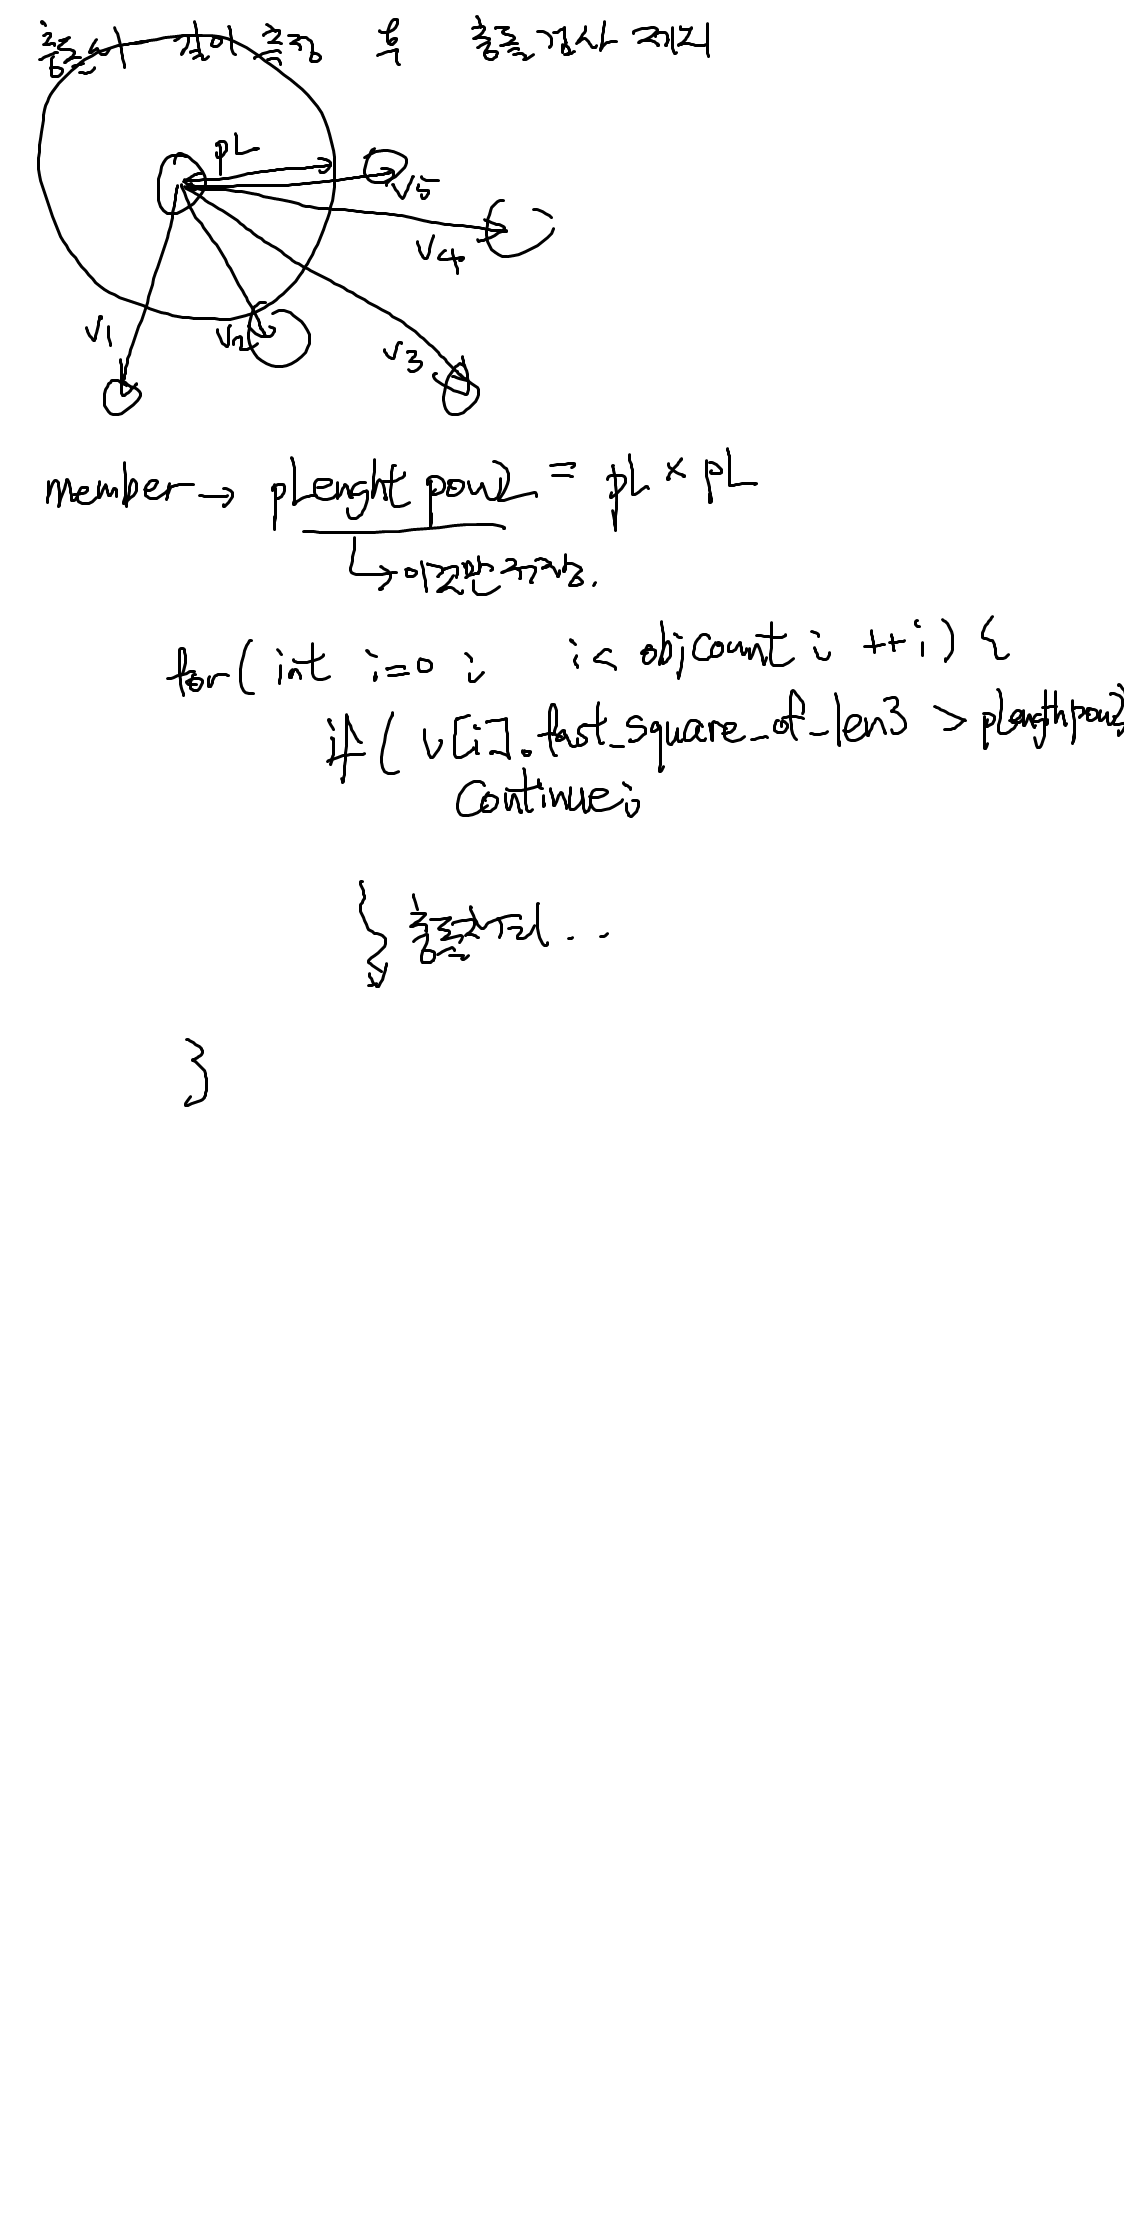 충돌시 길이 측정 후 충돌검사 제외
pL
v5
v4
v1
v2
v3
member → pLenght pow2 = pL × pL
↳ 이것만 저장.
for( int i=0 ; i< objcount ; ++i ) {
if ( v[i].fast_square_of_len3 > plengthpow2
continue;
충돌처리 . .
}